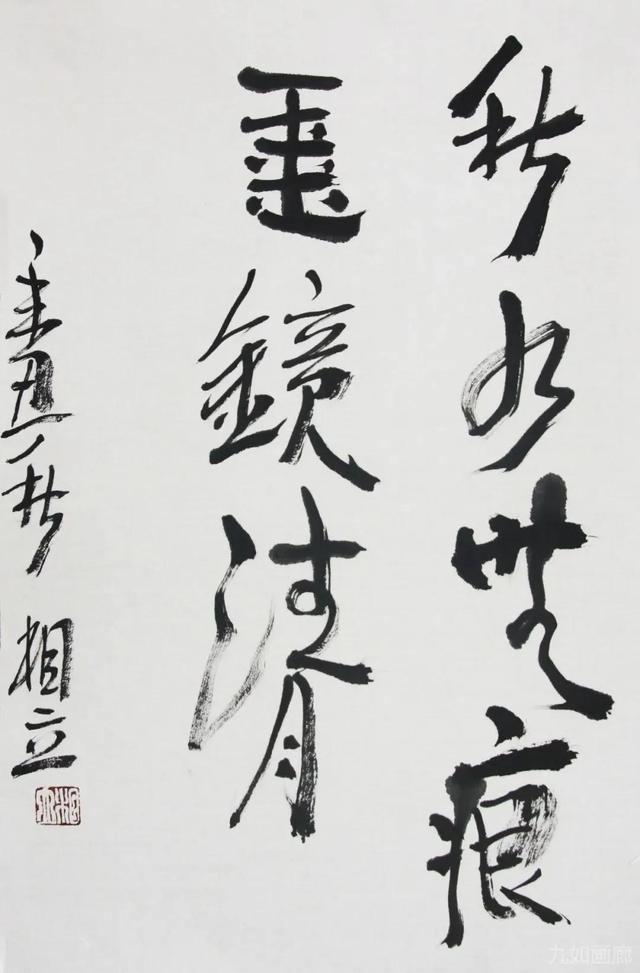 秋水無痕
匣鏡清
辛丑秋 相立
九如画廊